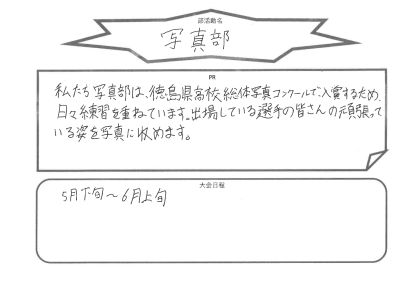 部活動名
写真部
PR
私たち写真部は、徳島県高校総体写真コンクールで、入賞するため、
日々練習を重ねています。出場している選手の皆さんの頑張って
いる姿を写真に収めます。
大会日程
5月下旬～6月上旬